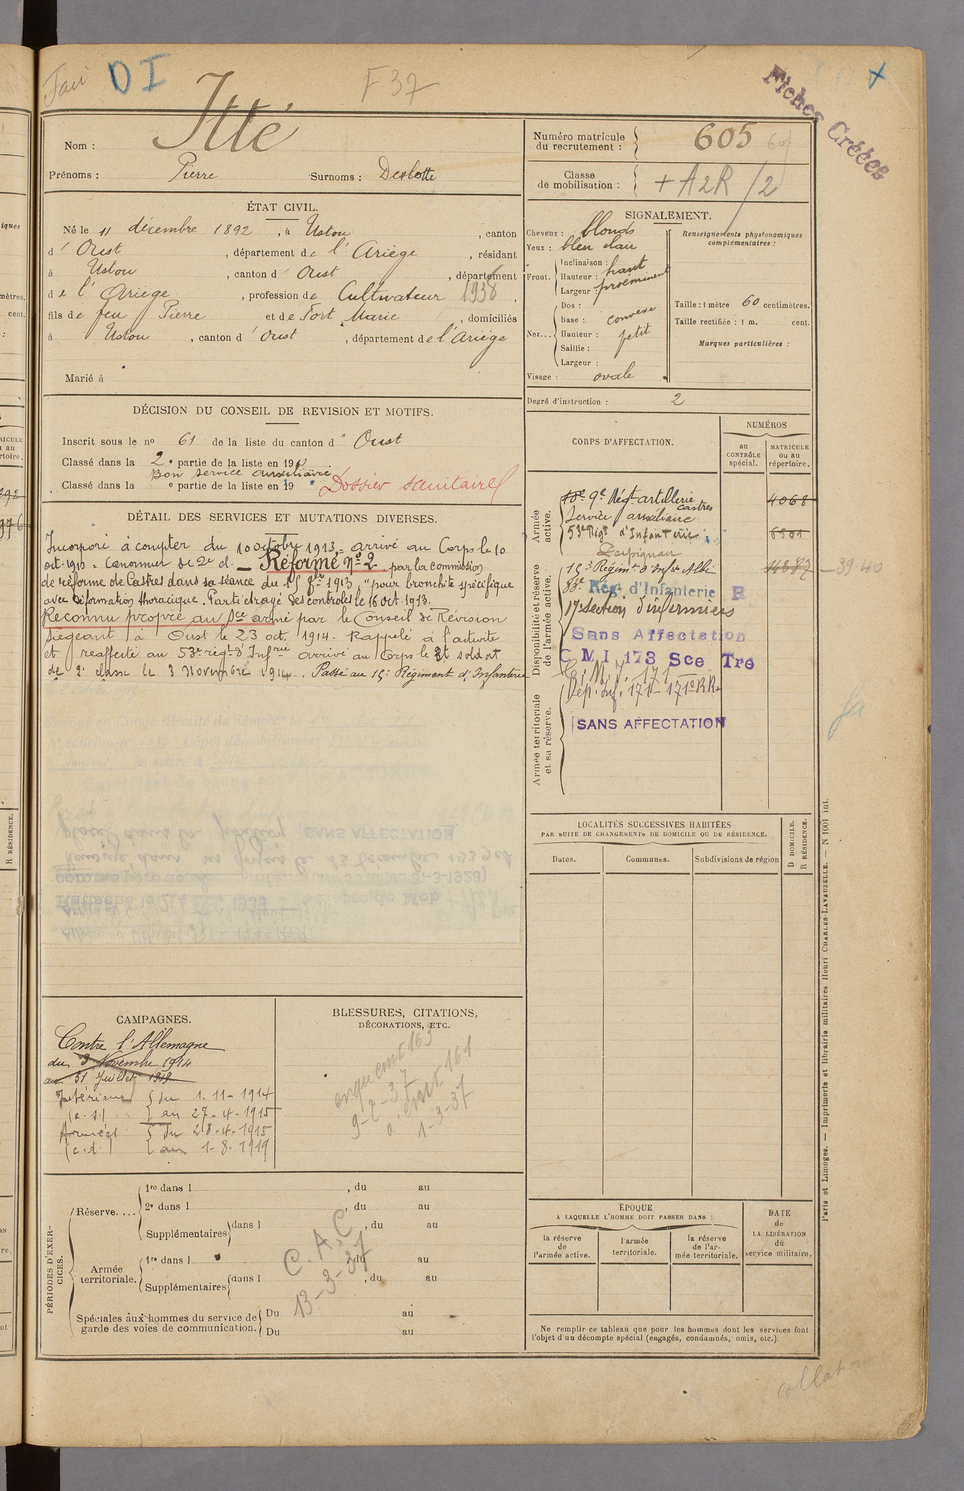 DI
F 37
Fiches Créées
Nom : Itté
Prénoms : Pierre Surnoms : Deslotte
Numéro matricule du recrutement : 605
Classe de mobilisation : + A2R /2
ÉTAT CIVIL.
Né le 11 décembre 1892, à Ustou, canton
d' Oust, département de l'Ariège, résidant
à Ustou, canton d' Oust, département
de l'Ariège, profession de Cultivateur 1938,
fils de feu Pierre et de Fort Marie, domiciliés
à Ustou, canton d' Oust, département de l'Ariège
Marié à
SIGNALEMENT.
Cheveux : blonds
Yeux : bleu clair
Front. Inclinaison :
Hauteur : haut
Largeur : proéminent
Nez... Dos :
Base : convexe
Hauteur : petit
Saillie :
Largeur :
Visage : ovale
Renseignements physionomiques complémentaires :
Taille : 1 mètre 60 centimètres.
Taille rectifiée : 1 m. cent.
Marques particulières :
Degré d'instruction : 2
DÉCISION DU CONSEIL DE REVISION ET MOTIFS.
Inscrit sous le nº 61 de la liste du canton d' Oust
Classé dans la 2e partie de la liste en 191
Bon service auxiliaire
Classé dans la e partie de la liste en 19
Dossier sanitaire
DÉTAIL DES SERVICES ET MUTATIONS DIVERSES.
Incorporé à compter du 10 octobre 1913, arrivé au Corps le 10
oct. 1913. Canonnier de 2e cl. — Réformé nº 2 par la commission
de réforme de Castres dans sa séance du 15 8bre 1913, "pour bronchite spécifique
avec déformation thoracique. Parti et rayé des controles le 16 oct. 1913.
Reconnu propre au Sce armé par le Conseil de Révision
siégeant à Oust le 23 oct. 1914. Rappelé à l'activité
et réaffecté au 53e régt d'Infrie arrivé au corps le dit soldat
de 2e classe le 3 Novembre 1914. Passé au 15e Régiment d'Infanterie
CORPS D'AFFECTATION.
NUMÉROS
AU CONTRÔLE spécial.
MATRICULE ou au répertoire.
Armée active.
9e Régt artillerie Castres 4068
Service auxiliaire
53e Régt d'Infanterie 6501
Perpignan
Disponibilité et réserve de l'armée active.
15e Régiment d'Infie Albi 39-40
Rég. d'Infanterie R
17e section d'infirmiers
Sans Affectation
C M I 173 Sce Tre
Armée territoriale et sa réserve.
C. M. I. 171
Dép. Inf. 171 - 171e RR
SANS AFFECTATION
LOCALITÉS SUCCESSIVES HABITÉES
PAR SUITE DE CHANGEMENTS DE DOMICILE OU DE RÉSIDENCE.
Dates. Communes. Subdivisions de région
D DOMICILE.
R RÉSIDENCE.
CAMPAGNES.
Contre l'Allemagne
du 3 Novembre 1914
au 31 Juillet 1919
Intérieur du 1-11-1914
(c.s.) au 27-4-1915
Armées du 28-4-1915
(c.d.) au 1-8-1919
BLESSURES, CITATIONS,
DÉCORATIONS, ETC.
9-2-37
1-3-37
PÉRIODES D'EXERCICES.
Réserve.... 1re dans l , du au
2e dans l , du au
Supplémentaires dans l , du au
Armée territoriale. 1re dans l , du au
Supplémentaires dans l , du au
Spéciales aux hommes du service de garde des voies de communication. Du au
Du au
C. A. C
13-3-37
ÉPOQUE
À LAQUELLE L'HOMME DOIT PASSER DANS :
la réserve de l'armée active.
l'armée territoriale.
la réserve de l'armée territoriale.
DATE de LA LIBÉRATION du service militaire.
Ne remplir ce tableau que pour les hommes dont les services font
l'objet d'un décompte spécial (engagés, condamnés, omis, etc.).
Paris et Limoges. — Imprimerie et librairie militaires Henri CHARLES-LAVAUZELLE. — N 1001 int.